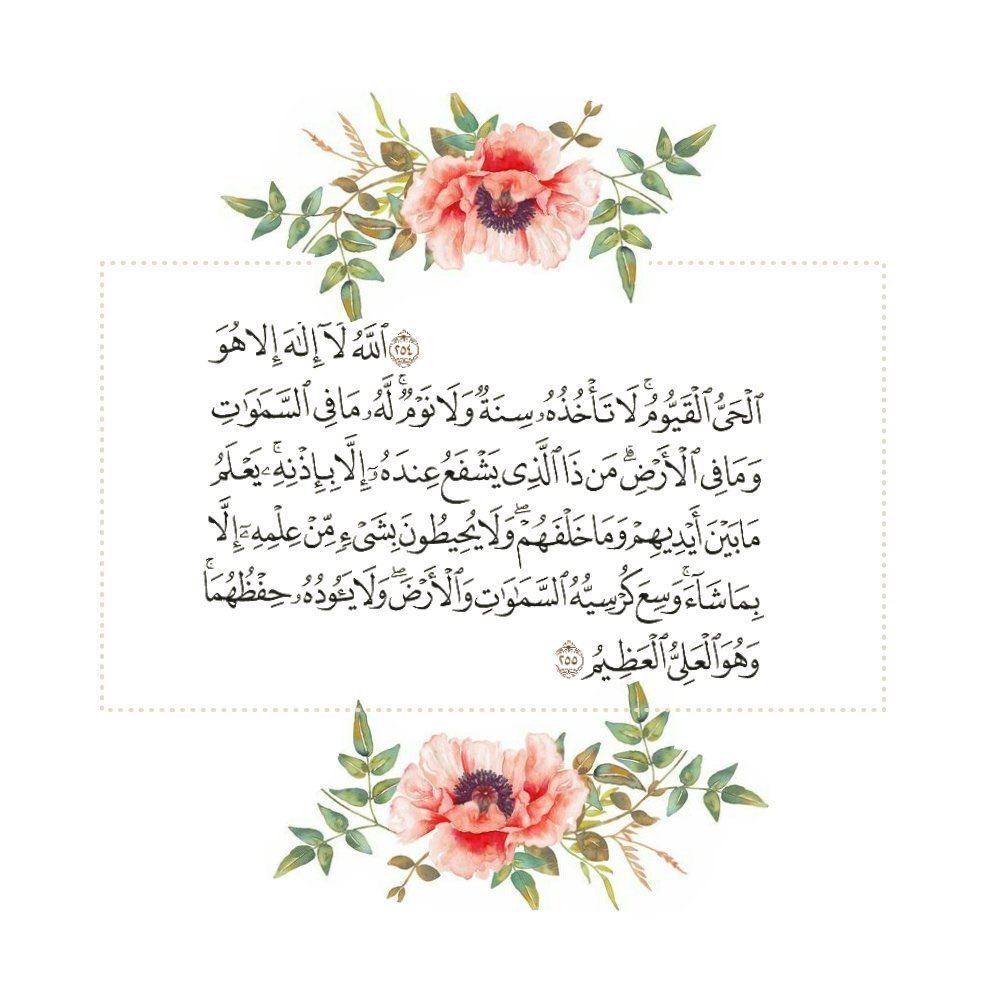 ﴿٢٥٤﴾ ٱللَّهُ لَآ إِلَٰهَ إِلَّا هُوَ
ٱلْحَىُّ ٱلْقَيُّومُ ۚ لَا تَأْخُذُهُۥ سِنَةٌ وَلَا نَوْمٌ ۚ لَّهُۥ مَا فِى ٱلسَّمَٰوَٰتِ
وَمَا فِى ٱلْأَرْضِ ۗ مَن ذَا ٱلَّذِى يَشْفَعُ عِندَهُۥٓ إِلَّا بِإِذْنِهِۦ ۚ يَعْلَمُ
مَا بَيْنَ أَيْدِيهِمْ وَمَا خَلْفَهُمْ ۖ وَلَا يُحِيطُونَ بِشَىْءٍ مِّنْ عِلْمِهِۦٓ إِلَّا
بِمَا شَآءَ ۚ وَسِعَ كُرْسِيُّهُ ٱلسَّمَٰوَٰتِ وَٱلْأَرْضَ ۖ وَلَا يَـُٔودُهُۥ حِفْظُهُمَا ۚ
وَهُوَ ٱلْعَلِىُّ ٱلْعَظِيمُ ﴿٢٥٥﴾